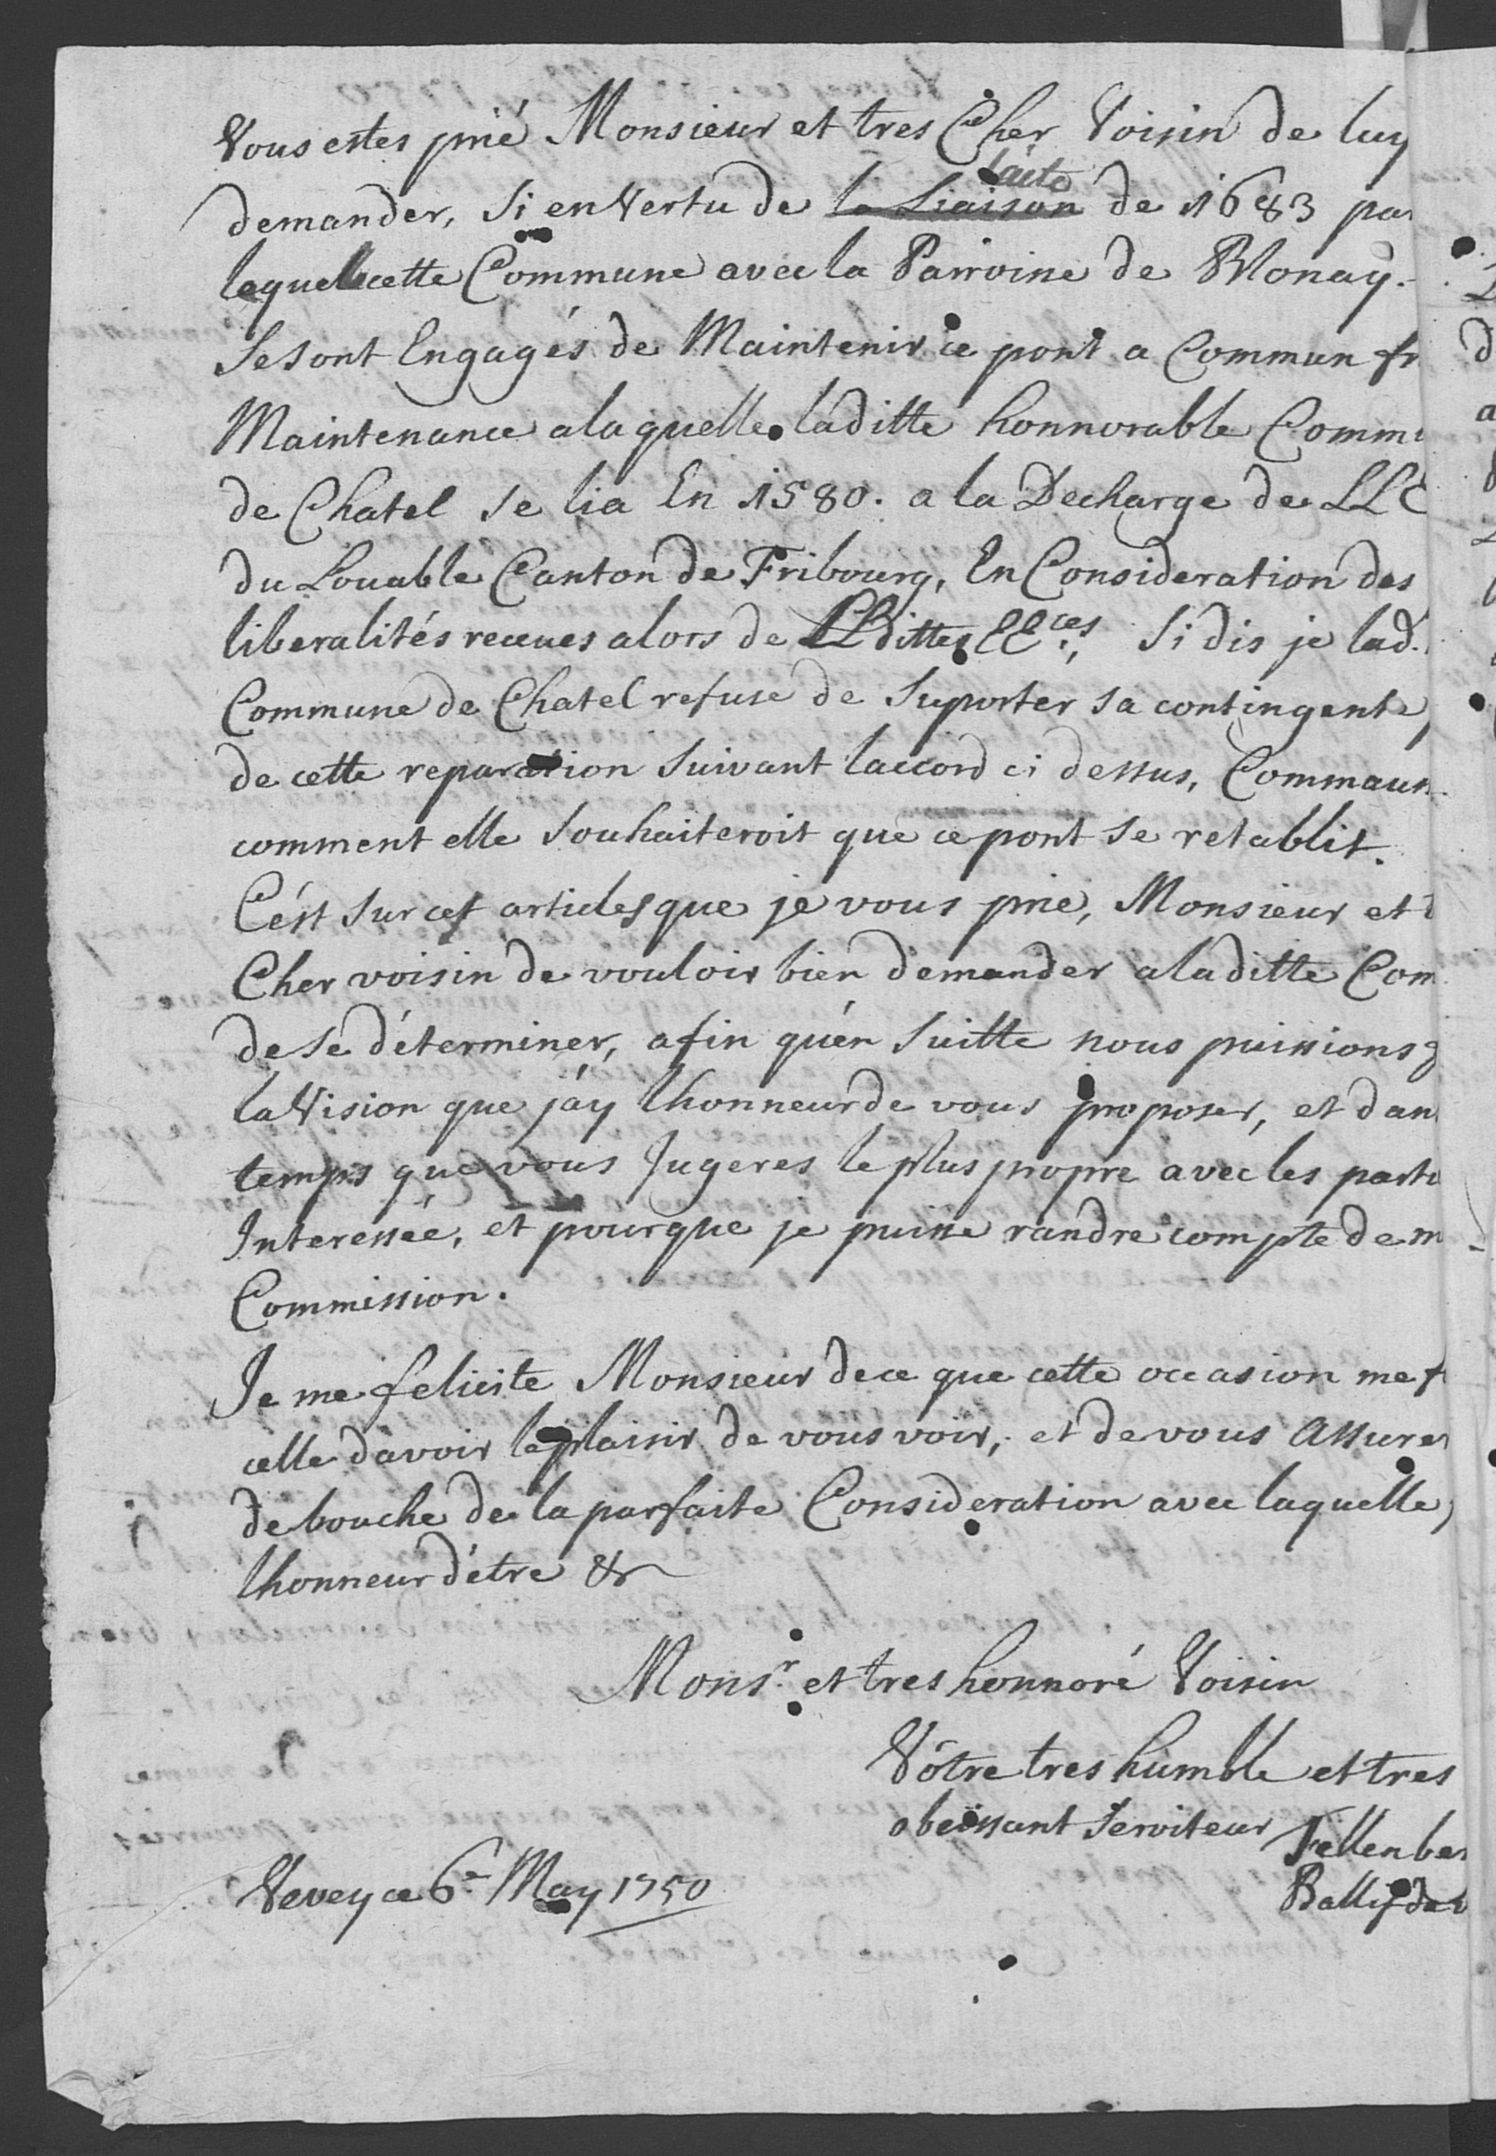 Vous estes prié Monsieur et tres Cher Voisin de luy
demander, Si en Vertu de la Liaison l'acte de 1683 par
lequel cette Commune avec la Parroine de Blonay.
Se sont Engagés de Maintenir ce pont a Commun fr
Maintenance a laquelle laditte honnorable Commu
de Chatel se lia En 1580. a la Decharge de LLE
du Louable Canton de Fribourg, En Consideration des
liberalités receues alors de LLdittes EEces, Si dis je lad.
Commune de Chatel refuse de Suporter sa contingente
de cette reparation Suivant laccord ci dessus, Commaun
comment elle Souhaiteroit que ce pont se retablit.
C'ést Sur ces articles que je vous prie, Monsieur et t
Cher voisin de vouloir bien demander a laditte Com
de se déterminer, afin qu'én Suitte nous puissions
la Vision que j'ay lhonneur de vous proposer, et dan
temps que vous Jugeres le plus propre avec les parti
Interessée, et pourque je puisse randre compte de m
Commission.
Je me felicite Monsieur de ce que cette occasion me f
celle davoir le plaisir de vous voir, et de vous Assurer
de bouche de la parfaite Consideration avec laquelle j
lhonneur d'étre &
Monsr. et tres honnoré Voisin
Vôtre tres humble et tres
obeissant Serviteur Fellenber
Vevey ce 6e May 1750
Ballif de V